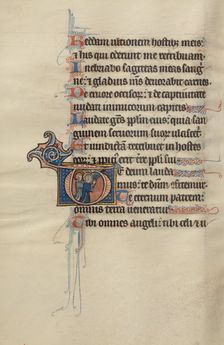 Reddam ultionem hostib; meis:
⁊ hiis qui oderunt me retribuam
Inebriabo sagittas meas sangui
ne: ⁊ gladius meus devorabit carnes
De cruore occisor: ⁊ de captivitate
nudati inimicorum capitis
Laudate gentes pplm eius: quia san
guinem servorum suor ulciscet
Et vindictam retribuet in hostes
eor: ⁊ ppici erit tre ppli sui
Te deum lauda
mus: te dnm ofitemur
Te eternum patrem:
omnis terra veneratur
Tibi omnes angeli: tibi celi ⁊ u